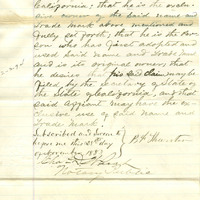 California; that he is the exclu-
sive owner of the said name and
Trade Mark above mentioned and
fully set forth; that he is the per-
son who has first adopted and
used said name and Trade Mark
and is its original owner; that
he desires that his said claim may be
filed by the Secretary of State of
the State of California, and that
said affiant may have the ex-
clusive use of said name and
Trade Mark.
Subscribed and sworn to
before me this 28th day
of 188
Notary Public